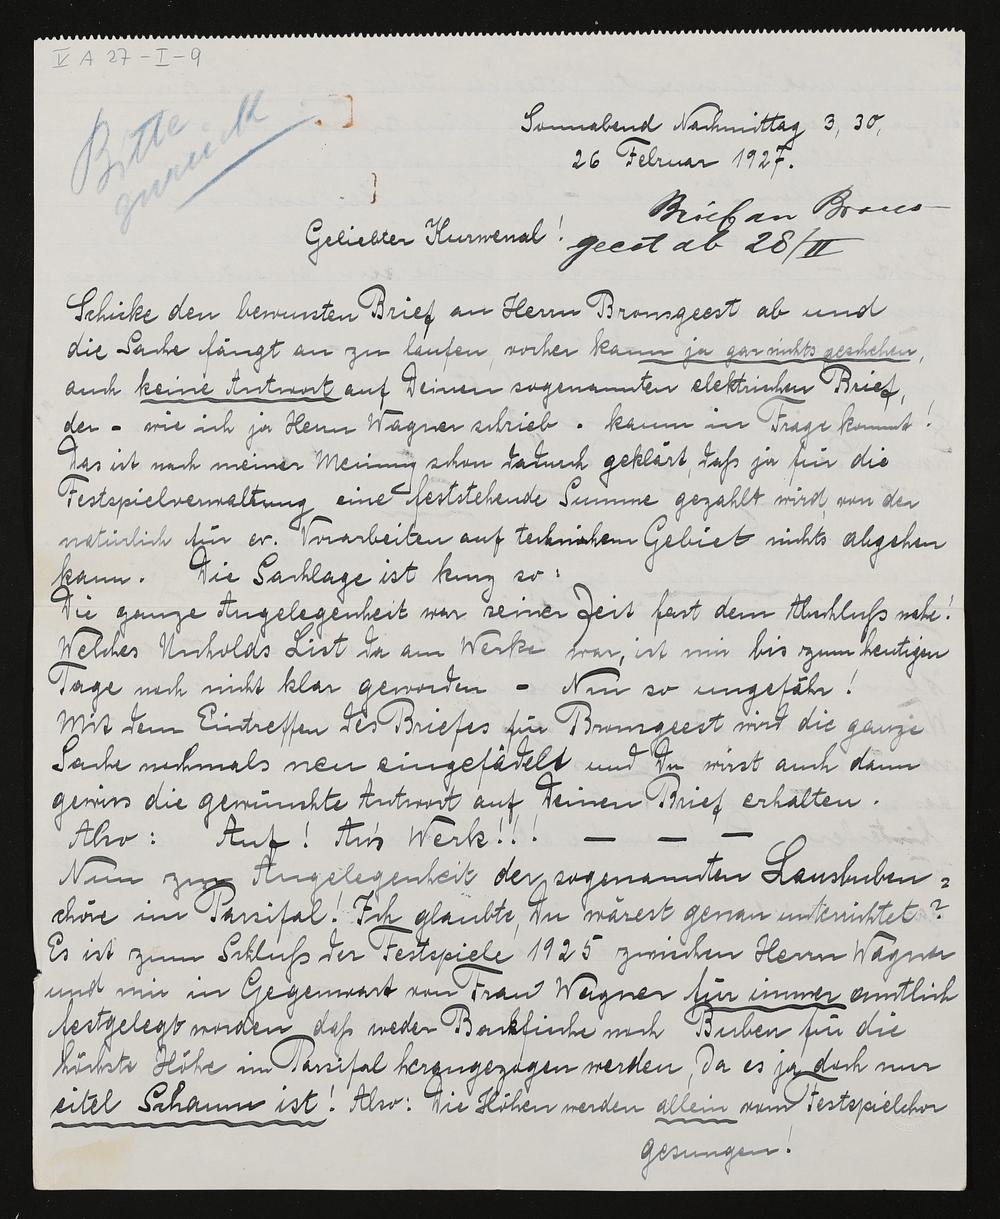 V A 27 - I - 9
Bitte
zurück
Sonnabend Nachmittag 3,30,
26 Februar 1927.
Brief an Brons-
geest ab 28/II
Geliebter Kurwenal!
Schicke den bewussten Brief an Herrn Bronsgeest ab und
die Sache fängt an zu laufen, vorher kann ja gar nichts geschehen,
auch keine Antwort auf Deinen sogenannten elektrischen Brief,
der - wie ich ja Herrn Wagner schrieb - kaum in Frage kommt!
Das ist nach meiner Meinung schon dadurch geklärt, daß ja für die
Festspielverwaltung eine feststehende Summe gezahlt wird, von der
natürlich für ev. Vorarbeiten auf technischem Gebiet nichts abgehen
kann. Die Sachlage ist kurz so:
Die ganze Angelegenheit war seiner Zeit fast dem Abschluß nahe!
Welches Unholds List da am Werke war, ist mir bis zum heutigen
Tage noch nicht klar geworden - Nur so ungefähr!
Mit dem Eintreffen des Briefes für Bronsgeest wird die ganze
Sache nochmals neu eingefädelt und Du wirst auch dann
gewiss die gewünschte Antwort auf Deinen Brief erhalten.
Also: Auf! An's Werk!!! — — —
Nun zur Angelegenheit der sogenannten Lausbuben =
chöre im Parsifal! Ich glaubte, Du wärest genau unterrichtet?
Es ist zum Schluß der Festspiele 1925 zwischen Herrn Wagner
und mir in Gegenwart von Frau Wagner für immer amtlich
festgelegt worden, daß weder Backfische noch Buben für die
höchste Höhe im Parsifal herangezogen werden, da es ja doch nur
eitel Schaum ist! Also: Die Höhen werden allein vom Festspielchor
gesungen!